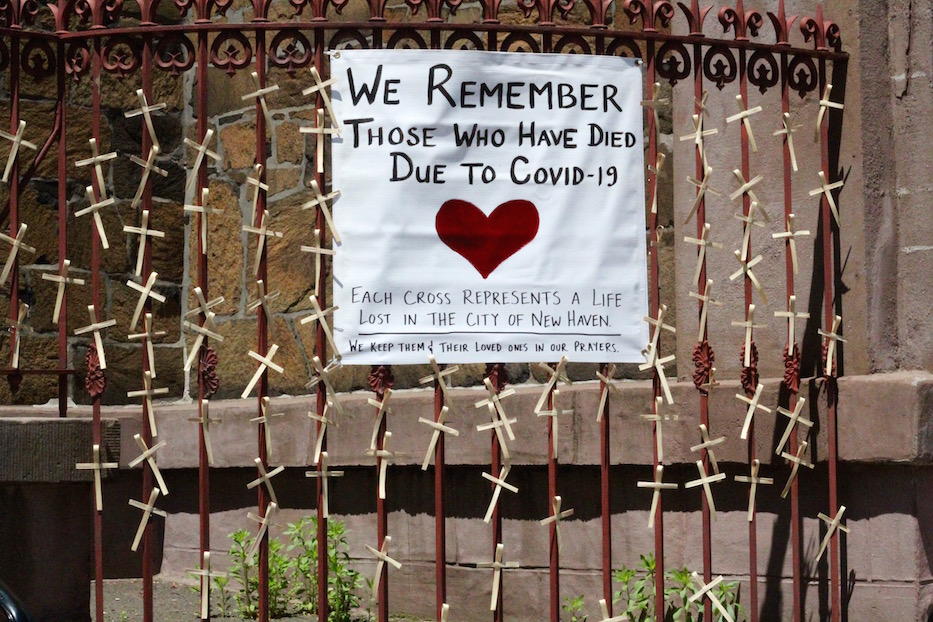 We Remember
Those Who Have Died
Due to Covid-19
Each Cross Represents a Life
Lost in the City of New Haven.
We Keep Them & Their Loved Ones in Our Prayers.